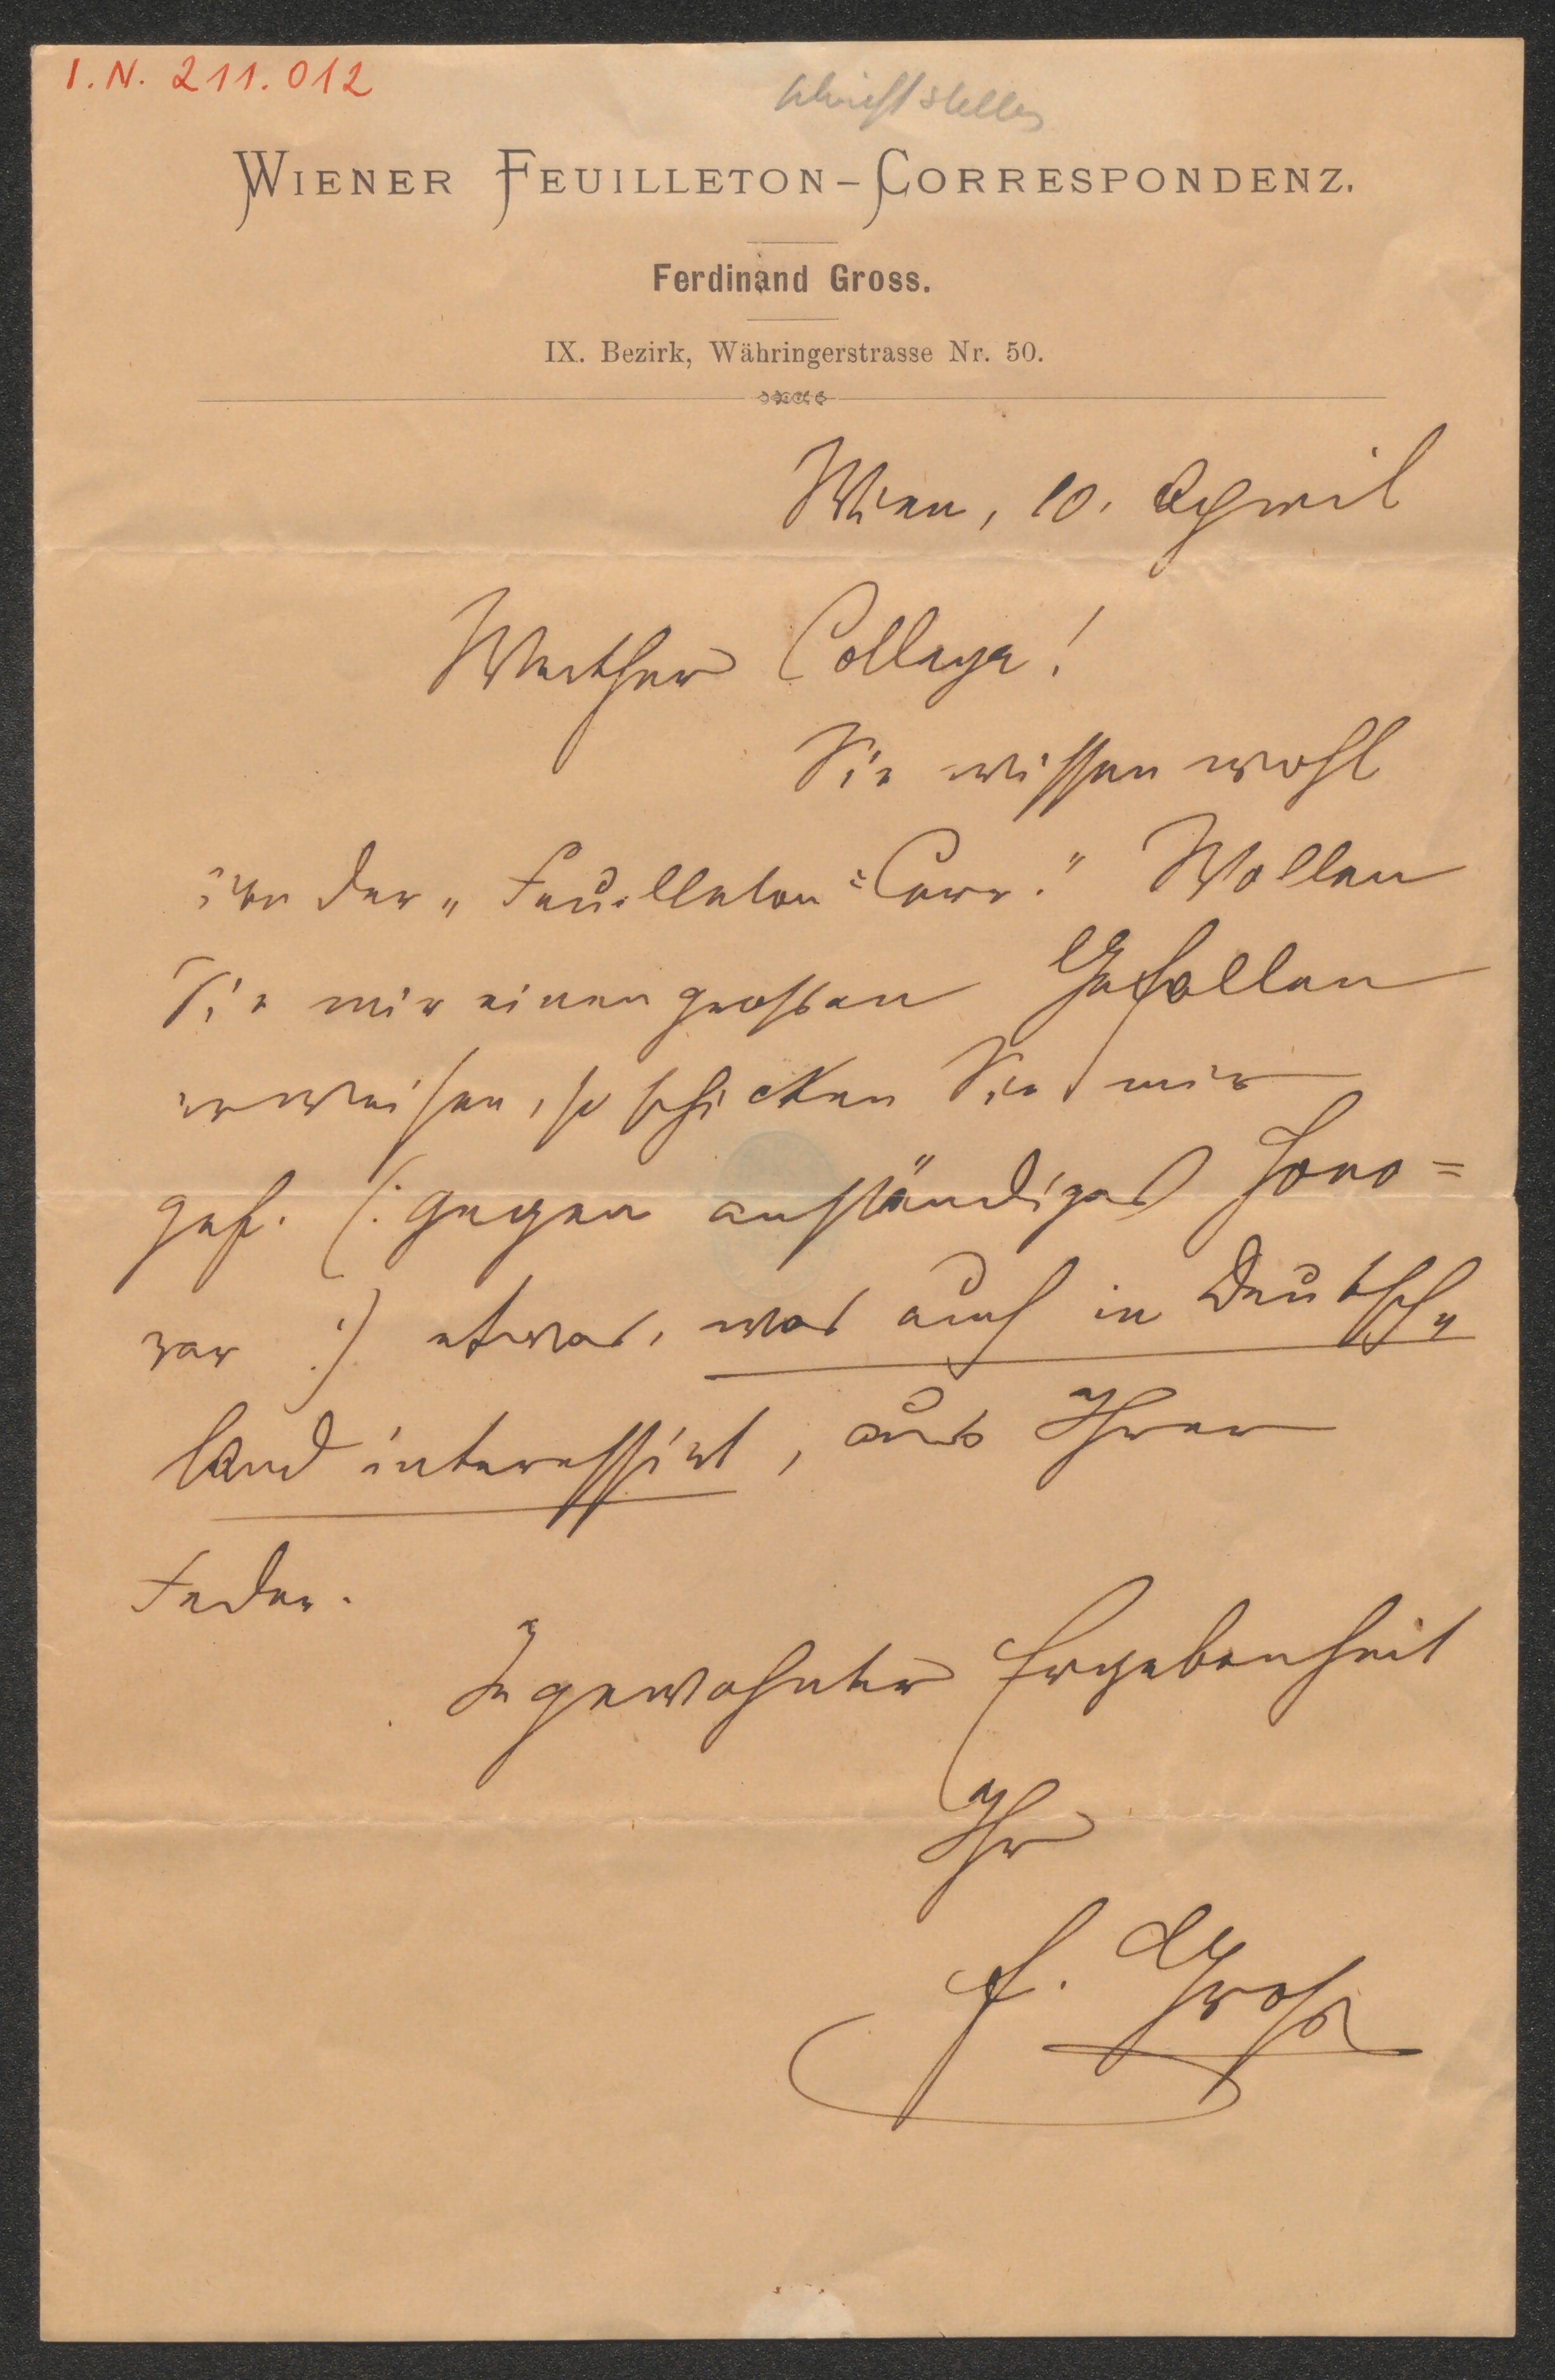 I. N. 211.012
Schriftsteller
WIENER FEUILLETON-CORRESPONDENZ.
Ferdinand Gross.
IX. Bezirk, Währingerstrasse Nr. 50.
Wien, 10. April
Werther College!
Sie wissen wohl
von der „Feuilleton=Corr." Wollen
Sie mir einen großen Gefallen
erweisen, so schicken Sie mir
gef. (: gegen anständiges Hono=
rar :) etwas, was auch in Deutsch=
land interessirt, aus Ihrer
Feder.
In gewohnter Ergebenheit
Ihr
F. Groß